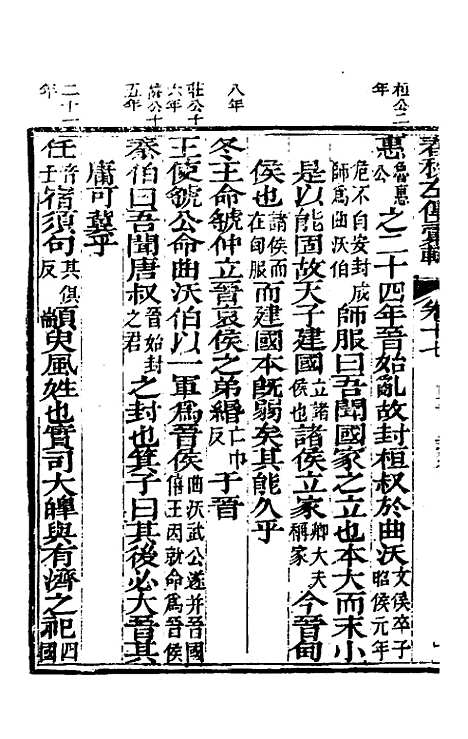 春秋左傳彙輯　卷十七
桓公二年
惠魯惠公之二十四年晉始亂故封桓叔於曲沃文侯卒子昭侯元年
危不自安封成師爲曲沃伯師服曰吾聞國家之立也本大而末小
是以能固故天子建國立諸侯也諸侯立家卿大夫稱家今晉甸
侯也諸侯而在甸服而建國本既弱矣其能久乎
八年
冬王命虢仲立晉哀侯之弟緡亡巾反于晉
莊公十六年
王使虢公命曲沃伯以一軍爲晉侯曲沃武公遂并晉國僖王因就命爲晉侯
僖公十五年
秦伯曰吾聞唐叔晉始封之君之封也箕子曰其後必大晉其
庸可冀乎
二十一年
任音壬宿須句其俱反顓臾風姓也實司大皡與有濟之祀四國